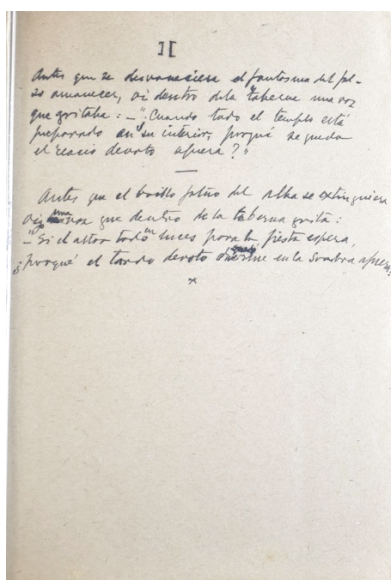 II
Antes que se desvaneciera el fantasma del fal-
so amanecer, oí dentro de la taberna una voz
que gritaba: — "Cuando todo el templo está
preparado en su interior, porqué se queda
el reacio devoto afuera?"
Antes que el del alba se extinguiera
oí una voz que dentro de la taberna grita:
— "Si el altar todo en luces para la fiesta espera,
¿porqué el tardo devoto en la sombra afuera?